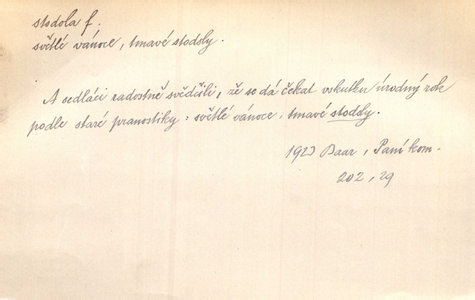 stodola f.
světlé vánoce, tmavé stodoly.
A sedláci radostně svědčili, že se dá čekat vskutku úrodný rok
podle staré pranostiky: světlé vánoce, tmavé stodoly.
1923 Baar, Paní kom-
202, 29